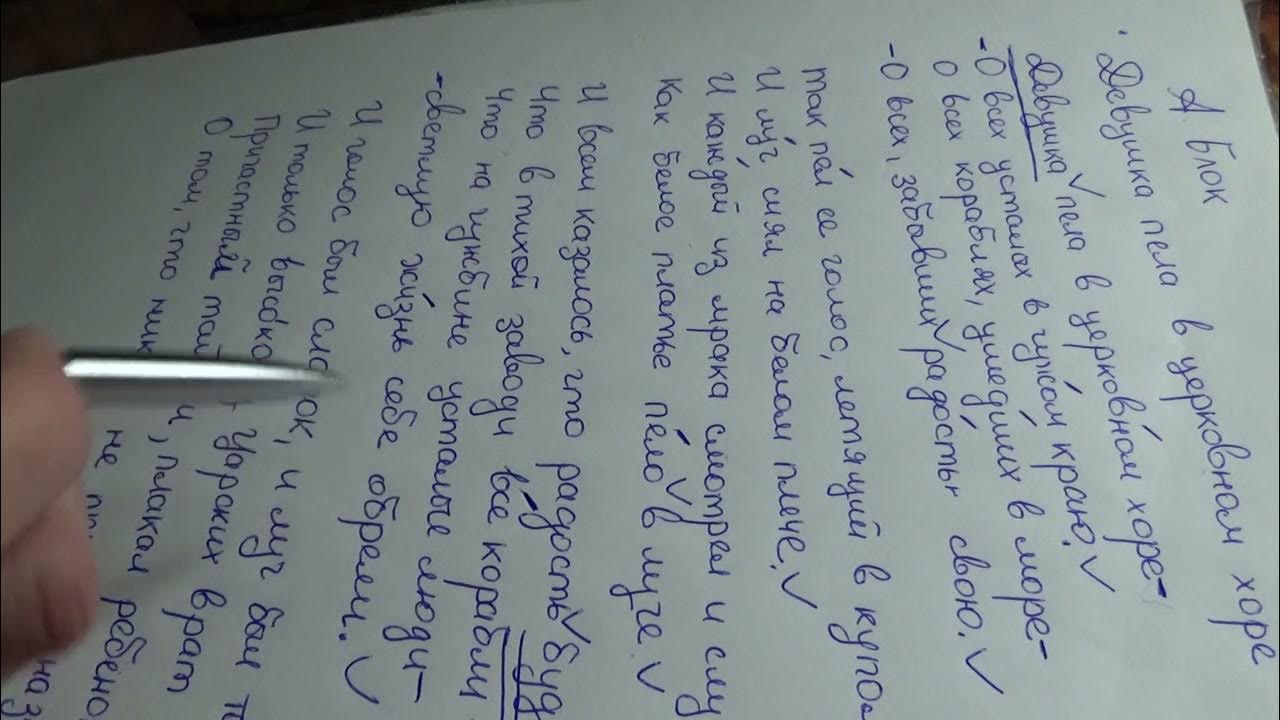 А Блок
Девушка пела в церковном хоре
Девушка ✓ пела в церковном хоре-
-О всех усталых в чужом краю. ✓
О всех кораблях, ушедших в море-
-О всех, забывших ✓ радость свою. ✓
Так пел ее голос, летящий в купо
И луч сиял на белом плече. ✓
И каждый из мрака смотрел и слу
Как белое платье пело ✓ в луче. ✓
И всем казалось, что радость ✓ буд
Что в тихой заводи все корабли
Что на чужбине усталые люди-
-светлую жизнь себе обрели. ✓
И голос был сла ок, и луч был т
И только высоко Царских врат
Причастный тай м, плакал ребено
О том, что ник не
наз